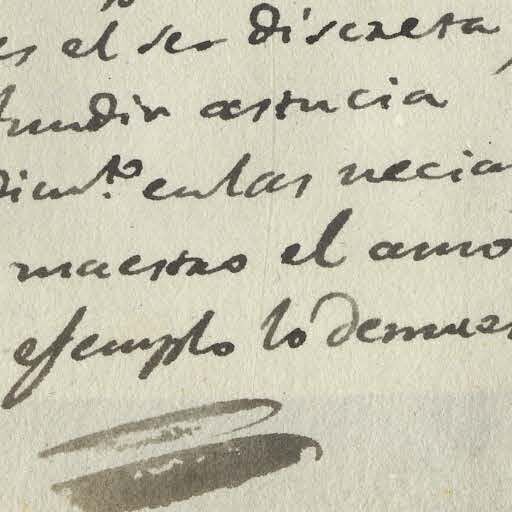 es el ser discreta
fundir astucia
dim.to en las necia
maestro el amo
ejemplo lo demues